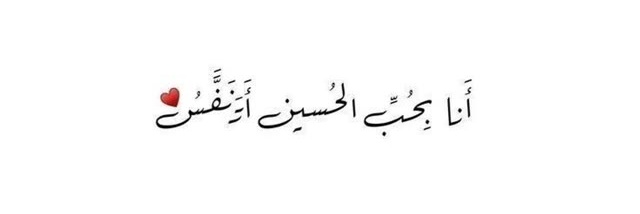 أَنا بِحُبِّ الحُسين أَتَنَفَّسُ ❤️